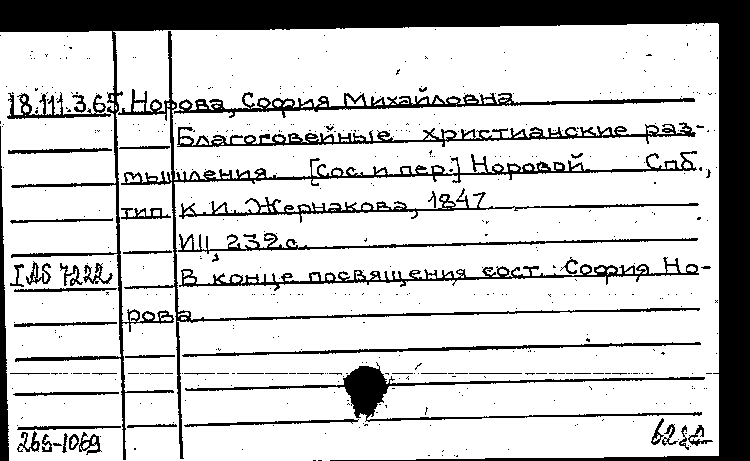 18.111.3.65. Норова, София Михайловна
Благоговейные христианские раз-
мышления. [Сос. и пер.] Норовой. Спб.,
тип. К.И. Жернакова, 1847.
III, 232 с.
В конце посвящения сост.: София Но-
рова.
266-1069